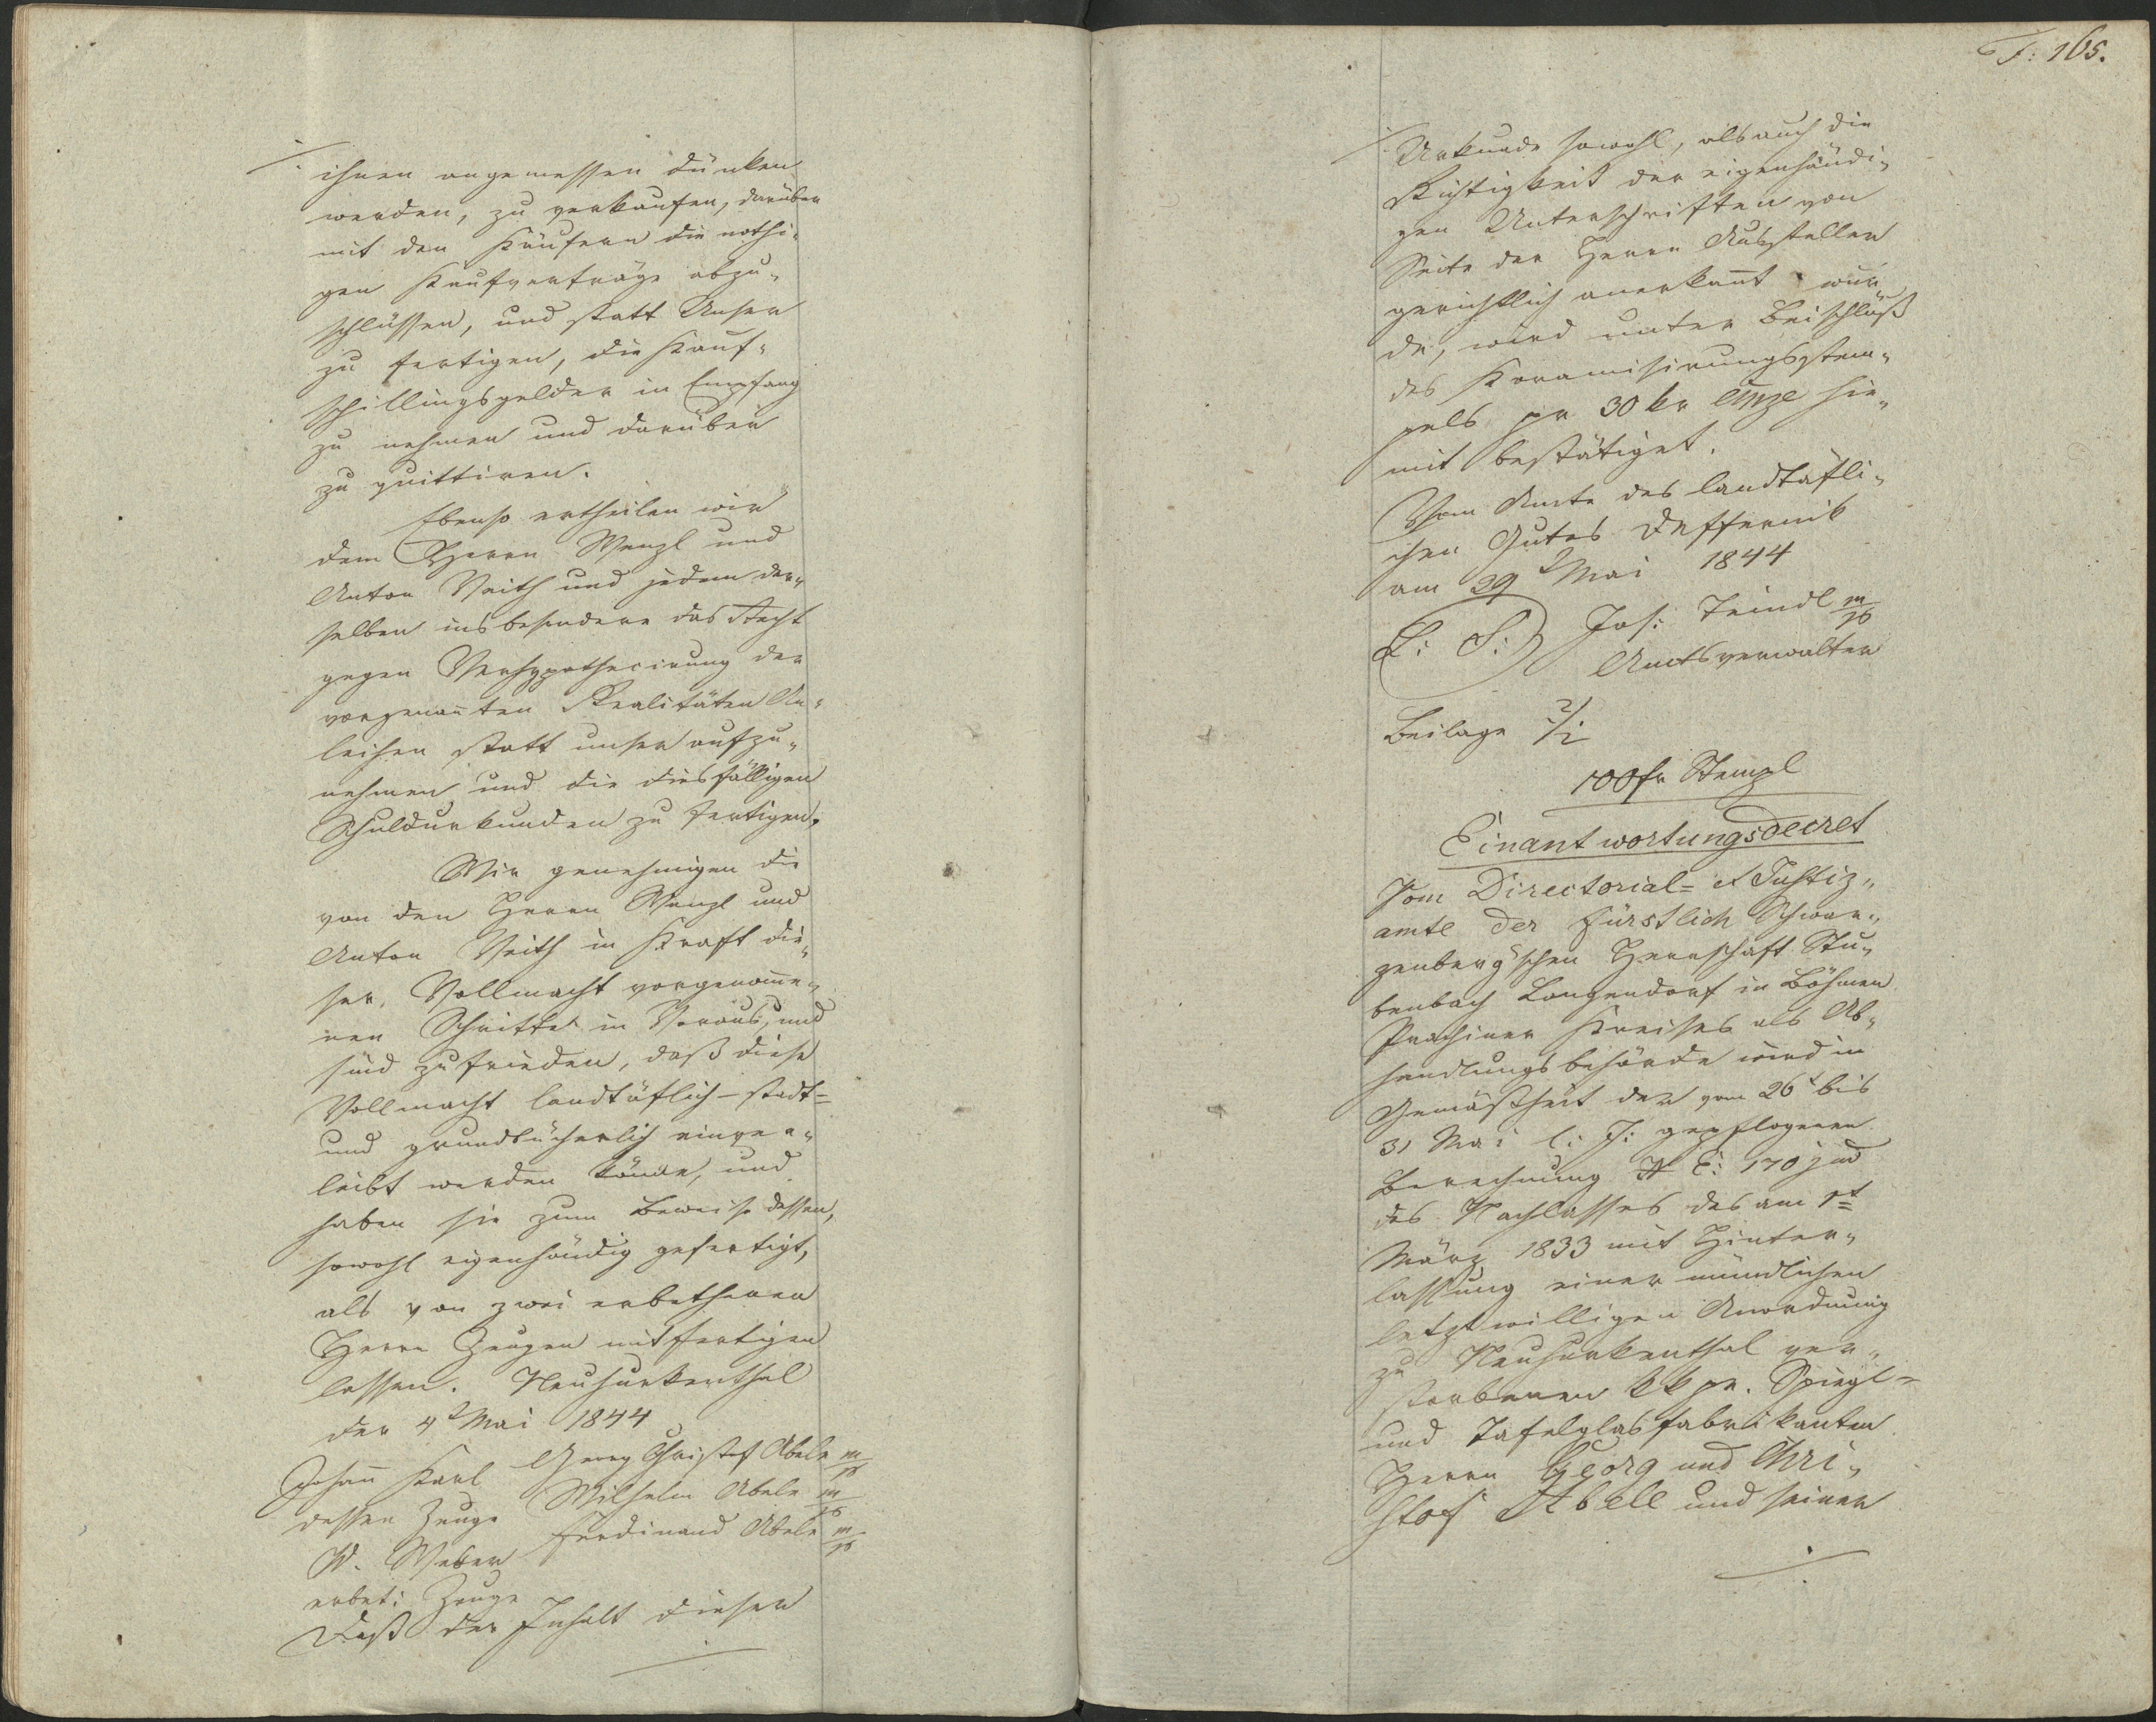 ihnen angemessen dünken
werden, zu verkaufen, darüber
mit den Käufern die nothi-
gen Kaufverträge abzu-
schlüssen, und statt Unser
zu fertigen, die Kauf-
schillingsgelder in Empfang
zu nehmen und darüber
zu quittiren.
Ebenso ertheilen wir
dem Herrn Wenzl und
Anton Veith und jedem der-
selben insbesondere das Recht
gegen Verhypothecirung der
vorgenañten Realitäten An-
leihen statt unser aufzu-
nehmen und die diesfälligen
Schuldurkunden zu fertigen.
Wir genehmigen die
von den Herrn Wenzl und
Anton Veith in Kraft die-
ser Vollmacht vorgenom̄e-
nen Schritte in Voraus, und
sind zufrieden, daß diese
Vollmacht landtäflich-stadt=
und grundbücherlich einver-
leibt werden könne, und
haben sie zum Beweise dessen,
sowohl eigenhändig gefertigt,
als von zwei erbethenen
Herrn Zeugen mitfertigen
lassen. Neuhurkenthal
der 4t Mai 1844
Johañ Karl Georg Christof Abele m/p
dessen Zeuge Wilhelm Abele m/p
W. Weber Ferdinand Abele m/p
erbet: Zeuge
Daß der Inhalt dieser
F: 165.
Urkunde sowohl, als auch die
Richtigkeit der eigenhändi-
gen Unterschriften von
Seite der Herrn Aussteller
gerichtlich anerkañt wur
de, wird unter Beischluß
des Koramisirungsstem-
pels pr 30 kr CMze hie-
mit bestätiget.
Vom Amte des landtäfli-
chen Gutes Deffernik
am 29t Mai 1844
L: S: Jos: Teindl m/p
Amtsverwalter
Beilage 2/i
100 fr Stempl
Einantwortungsdecret
Vom Directorial= et Justiz-
amte der fürstlich Schwar-
zenberg'schen Herrschaft Stu-
benbach Langendorf in Böhmen
Prachiner Kreises als Ab-
handlungsbehörde wird in
Gemäßheit der vom 26t bis
31 Mai l: J: gepflogenen
Berechnung N E: 170 jud
des Nachlasses des am 1t
März 1833 mit Hinter-
lassung einer mündlichen
letztwilligen Anordnung
zu Neuhurkenthal ver-
storbenen k k pr. Spiegl=
und Tafelglasfabrikanten
Herrn Georg und Chri-
stof Abele und seiner